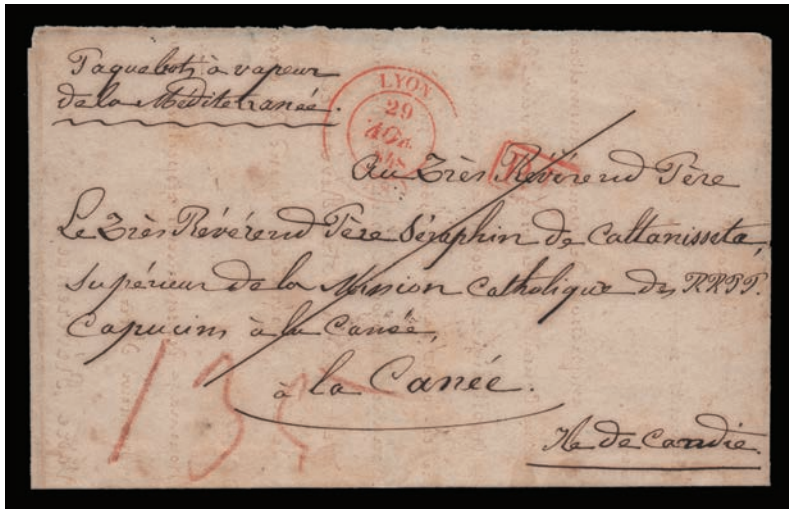 Paquebots à vapeur
de la Méditerranée.
LYON
29
AOU
1848
P.P.
Au Très Révérend Père
Le Très Révérend Père Séraphin de Caltanisseta,
Supérieur de la Mission Catholique des RRPP.
Capucins à la Canée,
à la Canée.
Ile de Candie.
135